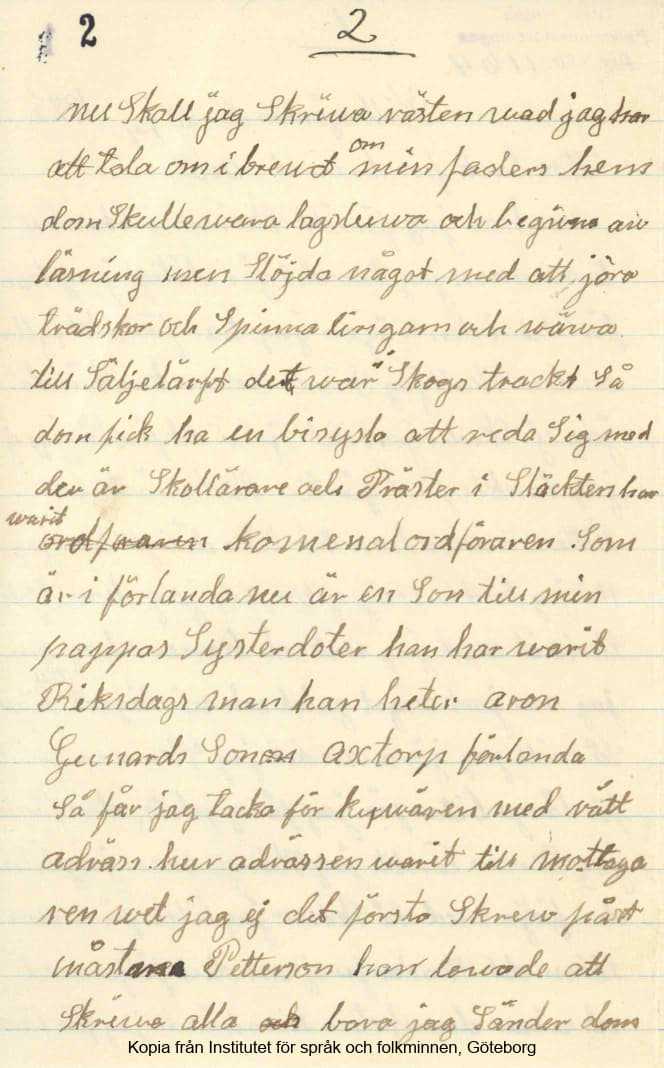 2
2
nu Skall jag Skriwa rästen wad jag har
att tola om i brewet om min faders hem
dom Skulle wara lagsluwa och begiwna aw
läsning men Slöjda något med att jöra
trädskor och Spinna lingarn och wäwa
till Säljelärft det war i Skogs trackt Så
dom fick ha en bisyslo att reda Sig med
der är Skollärare och Präster i Släckten har
warit
komenal ordföraren Som
är i förlanda nu är en Son till min
pappas Systerdoter han har warit
Riksdags man han heter aron
Gunards Son axtorp förlanda
Så får jag tacka för kuwären med rätt
adräss. hur adrässen warit till mottaga
ren wet jag ej det första Skrew påst
mästare Petterson han lowade att
Skriwa alla bara jag Sänder dom
Kopia från Institutet för språk och folkminnen, Göteborg